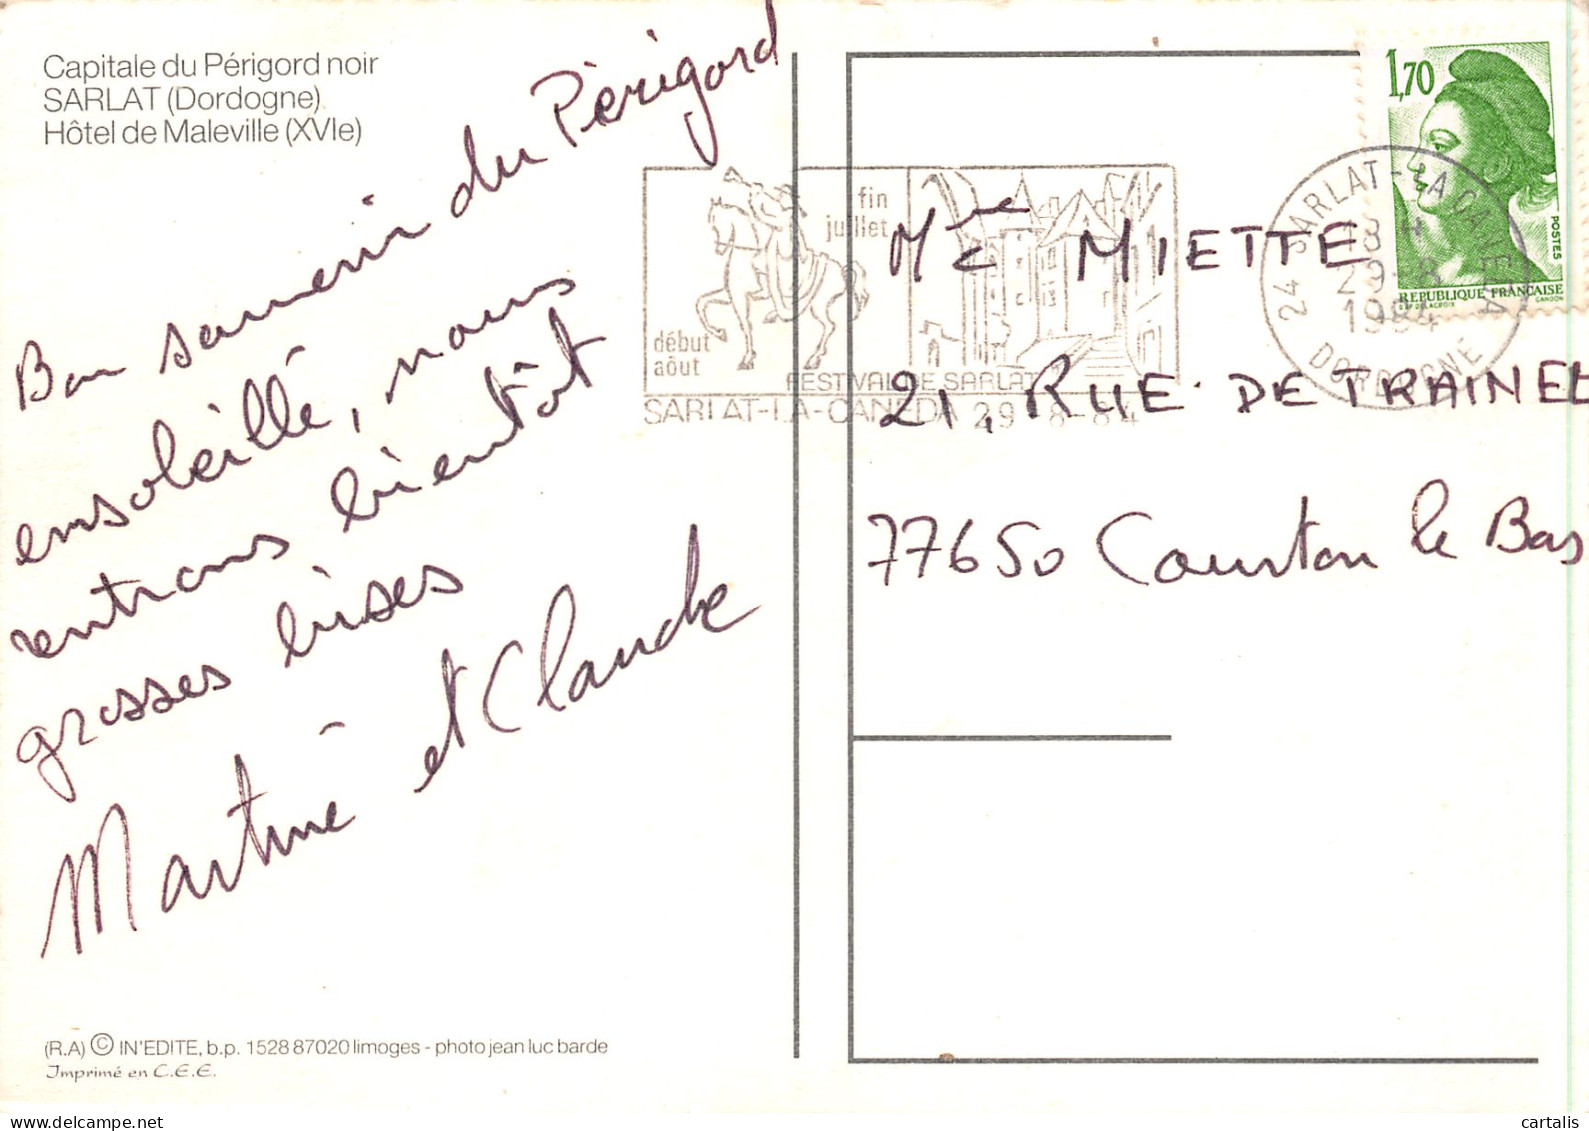 Capitale du Périgord noir
SARLAT (Dordogne)
Hôtel de Maleville (XVIe)
Bon souvenir du Périgord
ensoleillé, nous
rentrons bientôt
grosses bises
Martine et Claude
(R.A) © IN'EDITE, b.p. 1528 87020 limoges - photo jean luc barde
Imprimé en C.E.E.
fin
juillet
début
août
FESTIVAL DE SARLAT
SARLAT-LA-CANEDA 29-8-84
1,70
POSTES
REPUBLIQUE FRANÇAISE
GANDON
24 SARLAT-LA CANEDA
18 H
29-8
1984
DORDOGNE
Mme MIETTE
21, RUE DE TRAINEL
77650 Courton le Bas
cartalis